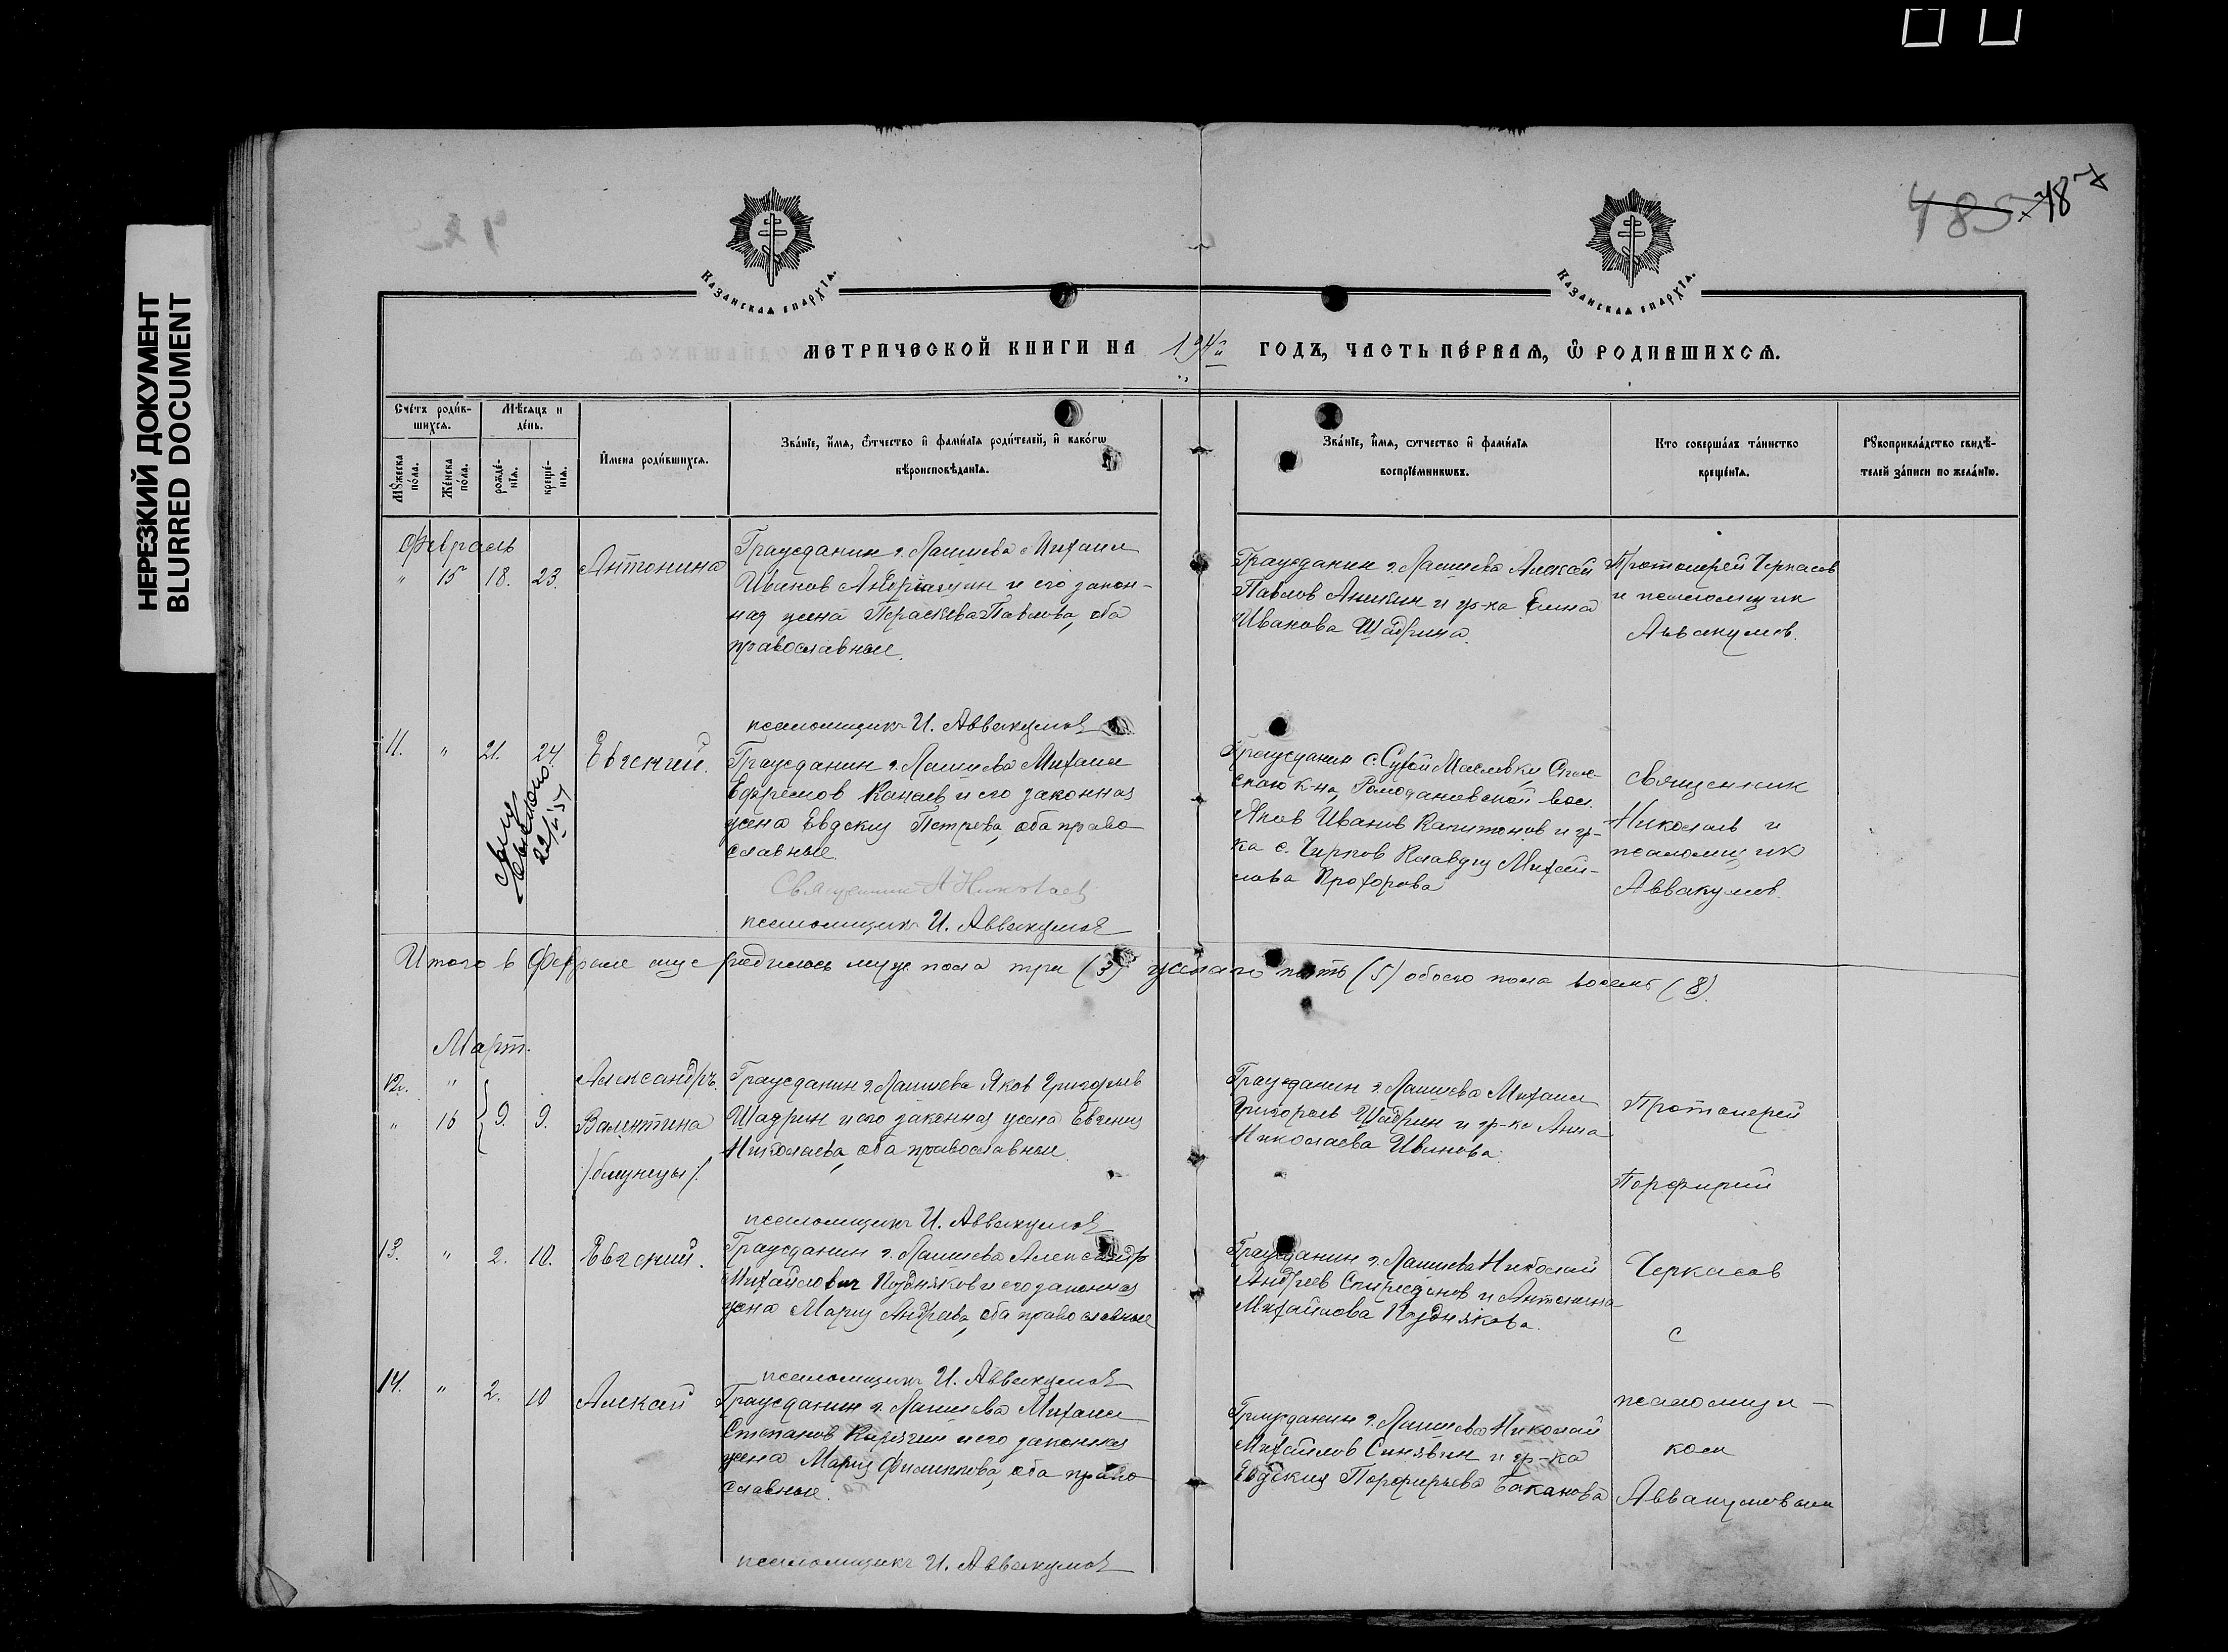 НЕРЕЗКИЙ ДОКУМЕНТ
BLURRED DOCUMENT
485
487
Казанская епархїа.
Казанская епархїа.
МЕТРИЧЕСКОЙ КНИГИ НА
ГОДЪ, ЧАСТЬ ПЕ́РВАѦ, Ѡ҆ РОДИВШИХСѦ.
Сче́тъ роди́в-
шихсѧ.
Мѣ́сѧцъ и
де́нь.
Мꙋ́жеска
по́ла.
Же́нска
по́ла.
рожде́-
нїѧ.
креще́-
нїѧ.
И҆мена роди́вшихсѧ.
Зва́нїе, и҆́мѧ, ѻ҆́тчество и҆ фами́лїѧ роди́телей, и҆ како́гѡ
вѣроисповѣ́данїѧ.
Зва́нїе, и҆́мѧ, ѻтчество и҆ фами́лїѧ
воспрїе́мникѡвъ.
Кто соверша́лъ та́инство
креще́нїѧ.
Рꙋкоприкла́дство свидѣ́-
телей за́писи по жела́нїю.
Февраль
" 15 18. 23. Антонина
Гражданин г. Лаишева Михаил
Иванов и его закон-
ная жена Параскева Павлова, оба
православные.
Гражданин г. Лаишева Алексей
Павлов Аникин и гр-ка Елена
Иванова Шадрина.
Протоиерей Черкасов
и псаломщик
Аввакумов.
псаломщикъ И. Аввакумов
11. " 21. 24. Евгений.
Гражданин г. Лаишева Михаил
Ефремов Канаев и его законная
жена Евдокия Петрова, оба право-
славные.
Священник А Николаев
псаломщикъ И. Аввакумов
Гражданин с. Сухой Масловки Спас-
скаго к-на, Ромодановской вол.
Яков Иванов Капитонов и гр-
ка с. Чирпов Клавдия Михай-
лова Прохорова
Священник
Николаев и
псаломщик
Аввакумов.
Итого в Феврале м-це родилось муж. пола три (3) женскаго пять (5) обоего пола восемь (8).
Март.
12. " Александръ.
" 16 9. 9. Валентина
/близнецы/.
Гражданин г. Лаишева Яков Григорьев
Шадрин и его законная жена Евгения
Николаева, оба православные.
Гражданин г. Лаишева Михаил
Григорьев Шадрин и гр-ка Анна
Николаева Иванова.
Протоиерей
Порфирий
псаломщикъ И. Аввакумов
13. " 2. 10. Евгений.
Гражданин г. Лаишева Александр
Михайлович Поздняков и его законная
жена Мария Андреева, оба православные
Гражданин г. Лаишева Николай
Андреев Спиридонов и Антонина
Михайлова Позднякова.
Черкасов
с
псаломщикъ И. Аввакумов
14. " 2. 10 Алексей
Гражданин г. Лаишева Михаил
Степанов и его законная
жена Мария Филиппова, оба право-
славные.
Гражданин г. Лаишева Николай
Михайлов Синявин и гр-ка
Евдокия Порфирьева Баканова
псаломщи-
ком
Аввакумовым
псаломщикъ И. Аввакумов